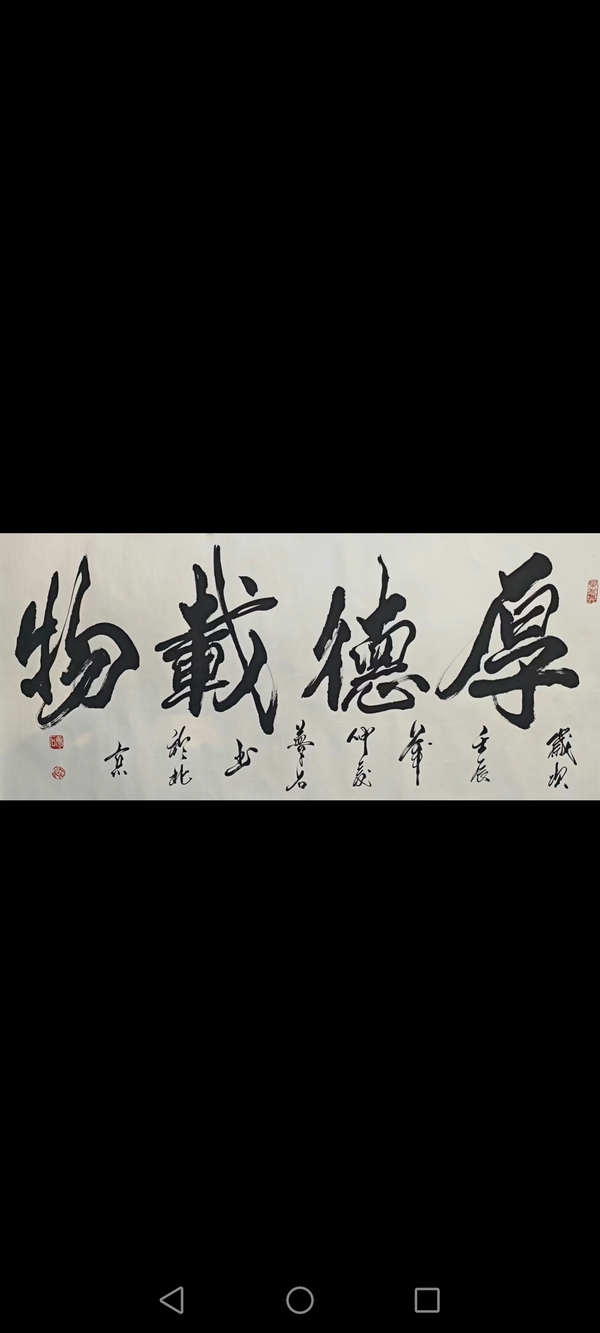 厚德載物
歲次
壬辰
年
仲夏
夢石
书
於北
京